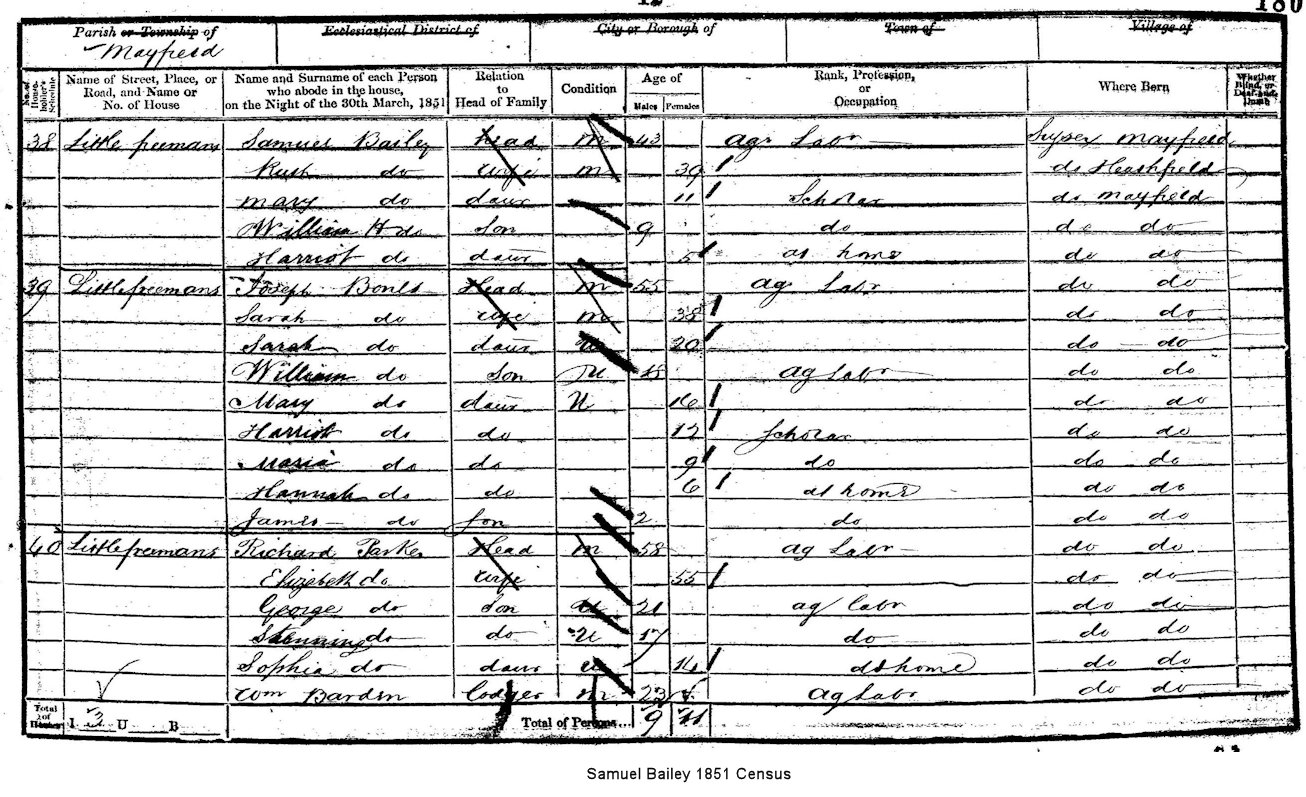 180
Parish or Township of Ecclesiastical District of City or Borough of Town of Village of
Mayfield
No. of House-holder's Schedule Name of Street, Place, or Road, and Name or No. of House Name and Surname of each Person who abode in the house, on the Night of the 30th March, 1851 Relation to Head of Family Condition Age of Males Females Rank, Profession, or Occupation Where Born Whether Blind, or Deaf-and-Dumb
38 Little freemans Samuel Bailey Head M 43 ag Labr Sussex Mayfield
Ruth do wife M 39 do Heathfield
Mary do daur 11 Scholar do Mayfield
William H do Son 9 do do do
Harriot do daur 5 at home do do
39 Littlefreemans Joseph Bones Head M 55 ag Labr do do
Sarah do wife M 38 do do
Sarah do daur U 20 do do
William do Son U 18 ag Labr do do
Mary do daur U 16 do do
Harriot do do 12 Scholar do do
Maria do do 9 do do do
Hannah do do 6 at home do do
James do Son 2 do do do
40 Littlefreemans Richard Parker Head M 58 ag Labr do do
Elizabeth do wife 55 do do
George do Son U 21 ag labr do do
do do U 17 do do do
Sophia do daur U 14 at home do do
Wm Barden lodger M 23 ag Labr do do
Total of Houses I 3 U B Total of Persons... 9 11
Samuel Bailey 1851 Census